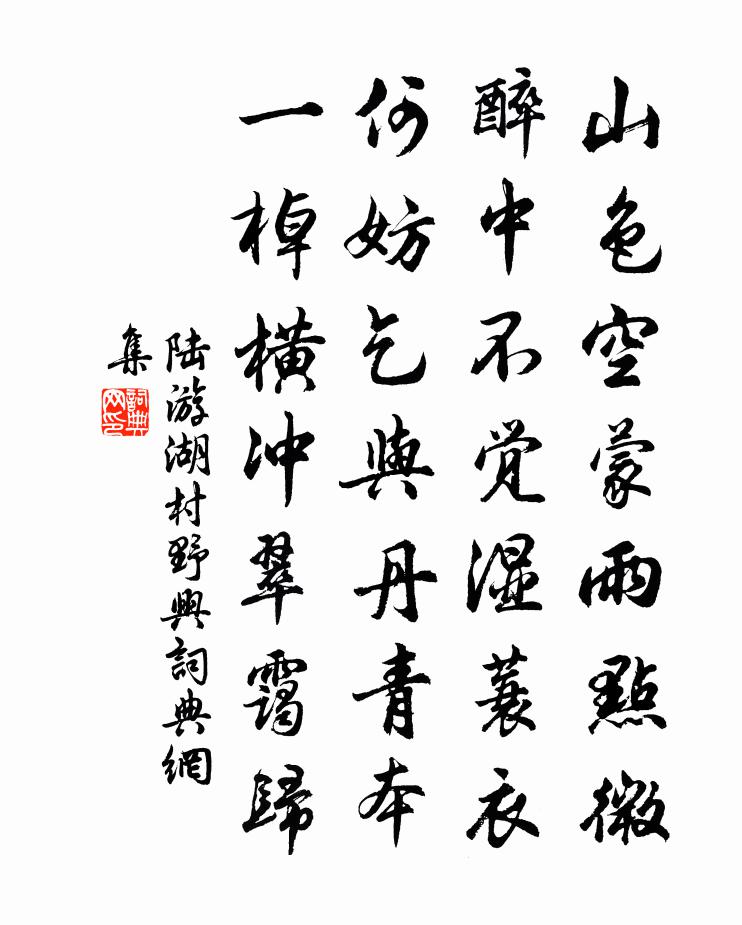 山色空蒙雨點微
醉中不觉湿蓑衣
何妨乞與丹青本
一棹橫冲翠靄歸
陸游湖村野興詞典網
集
詞典网印